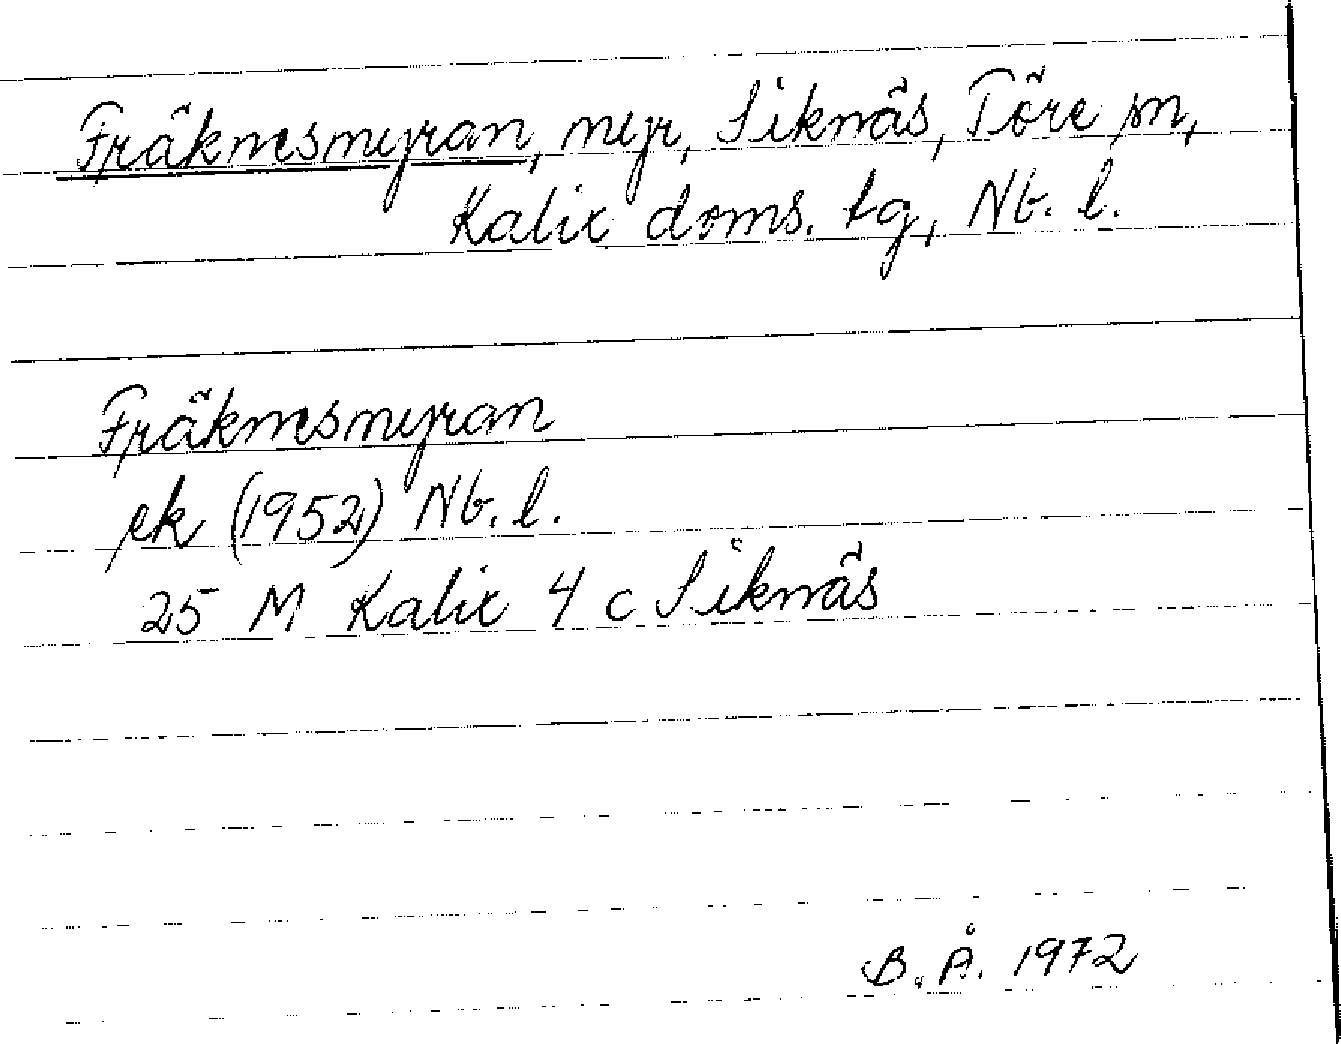 Fräknesmyran, myr, Siknäs, Töre sn,
Kalix doms. tg, Nb. l.
Fräknesmyran
ek (1952) Nb. l.
25 M Kalix 4 c Siknäs
B. Å. 1972